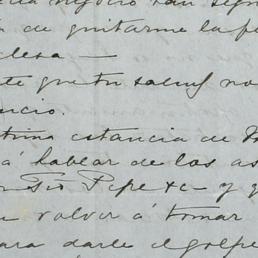 negocio tan
de quitarme la
te que tu salud no
ncio.
tima estancia de
á hablar de los as
n Tio Pepe &c— y
volver á tomar
ara darle el golpe